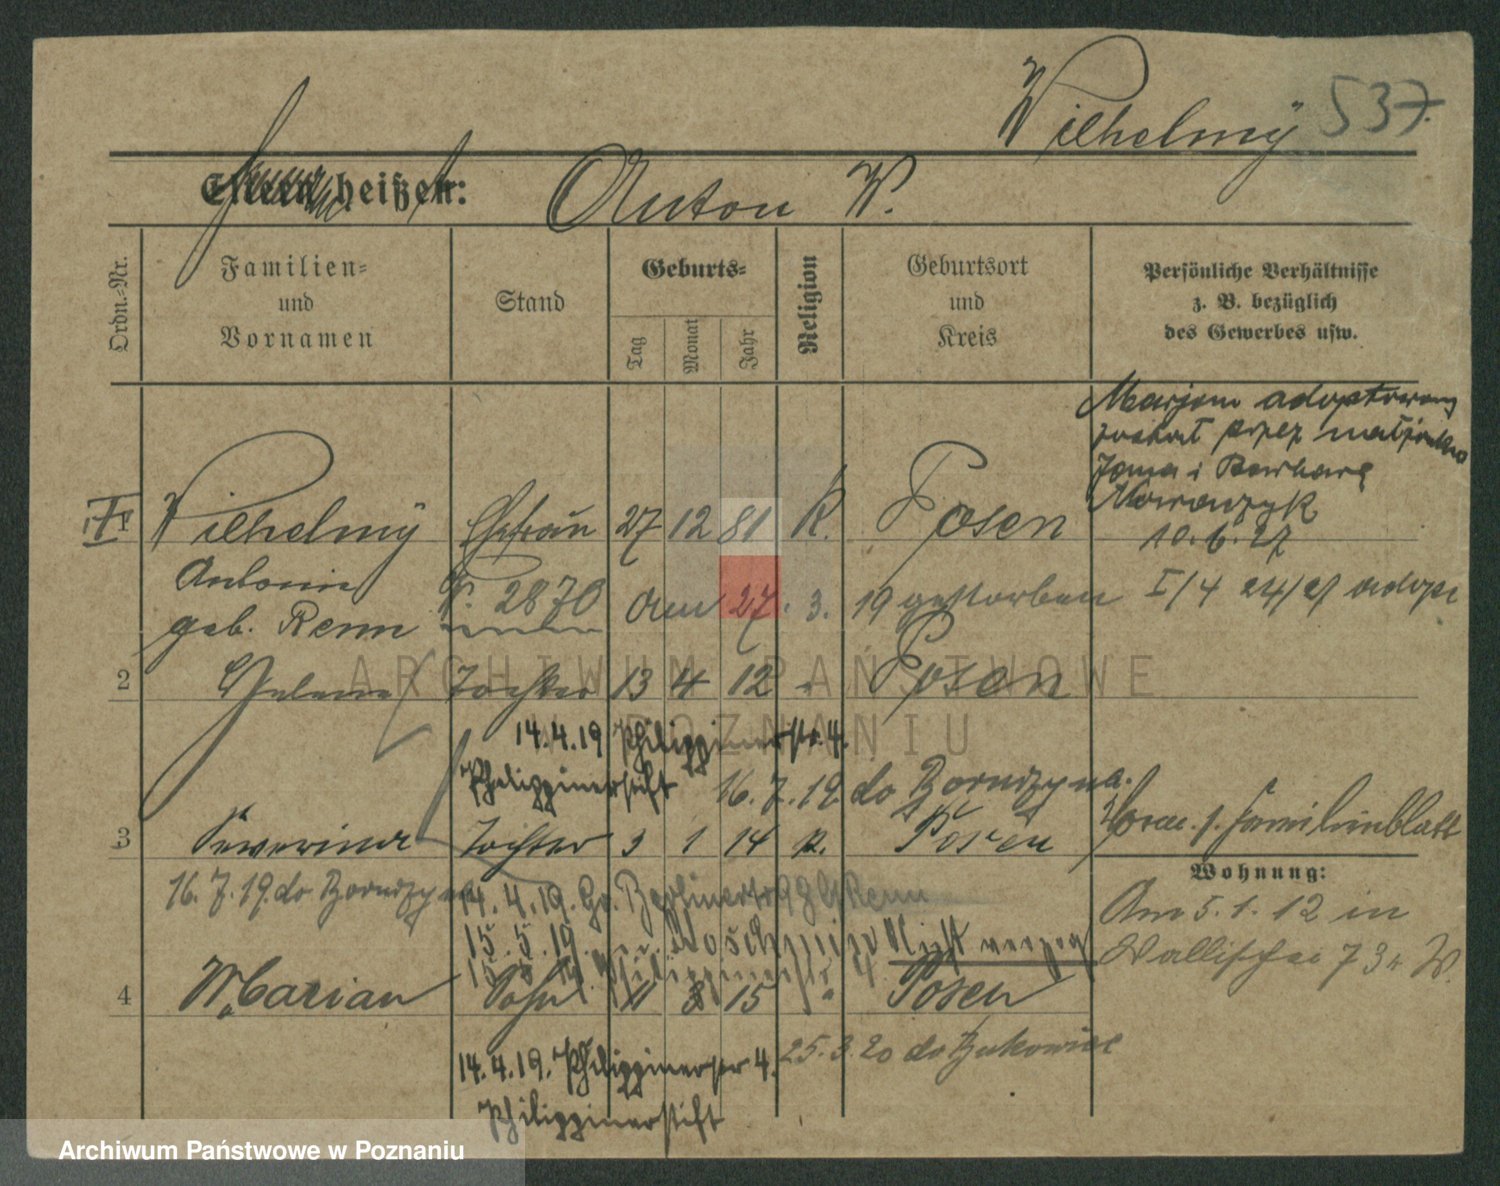 Wilhelmy 537.
Eltern heißen: Anton W.
Ordn.-Nr.
Familien-
und
Vornamen
Stand
Geburts-
Tag
Monat
Jahr
Religion
Geburtsort
und
Kreis
Persönliche Verhältnisse
z. B. bezüglich
des Gewerbes usw.
Marjan adoptowany
został przez małżonków
Jana i Barbarę
Nowaczyk
10.6.27
I/4 24/27 adopt
Wilhelmy Ehefrau 27 12 81 K. Posen
Antonin
geb. Renn 2870 am 27. 3. 19 gestorben
2 Helena Tochter 13 4 12 " Posen
14.4.19 Philippinerstr. 4.
Philippinerstift 16.7.19 do
3 Severina Tochter 3 1 14 k. Posen
Familienblatt
Wohnung:
Am 5.1.12 in
Wallischei 73 W.
16.7.19. do
14.4.19. Gr. Berlinerstr. Renn
15.5.19. Nicht verzog
4 Marian Sohn 11 8 15 " Posen
14.4.19. Philippinerstr 4. 25.3.20 do Bukowiec
Philippinerstift
ARCHIWUM PAŃSTWOWE
W POZNANIU
Archiwum Państwowe w Poznaniu